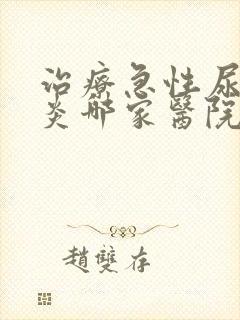 治療急性尿
炎哪家醫院
趙雙存